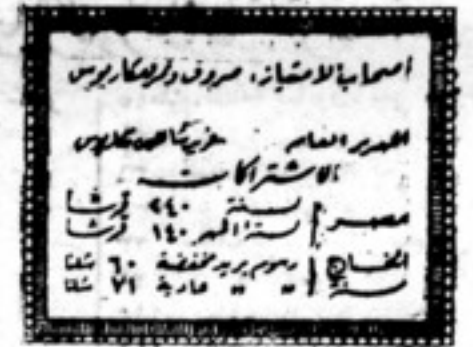 أصحاب الامتياز: صروف ونمر ومكاريوس
المدير العام
الاشتراكات
مصر
سنة ٢٤٠ قرشا
ستة أشهر ١٤٠ قرشا
الخارج سنة
رسوم بريد مخفضة ٦٠ شلنا
" " عادية ٧١ شلنا